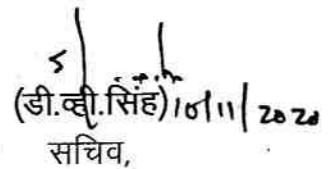 (डी.व्ही.सिंह) 10/11/2020
सचिव,